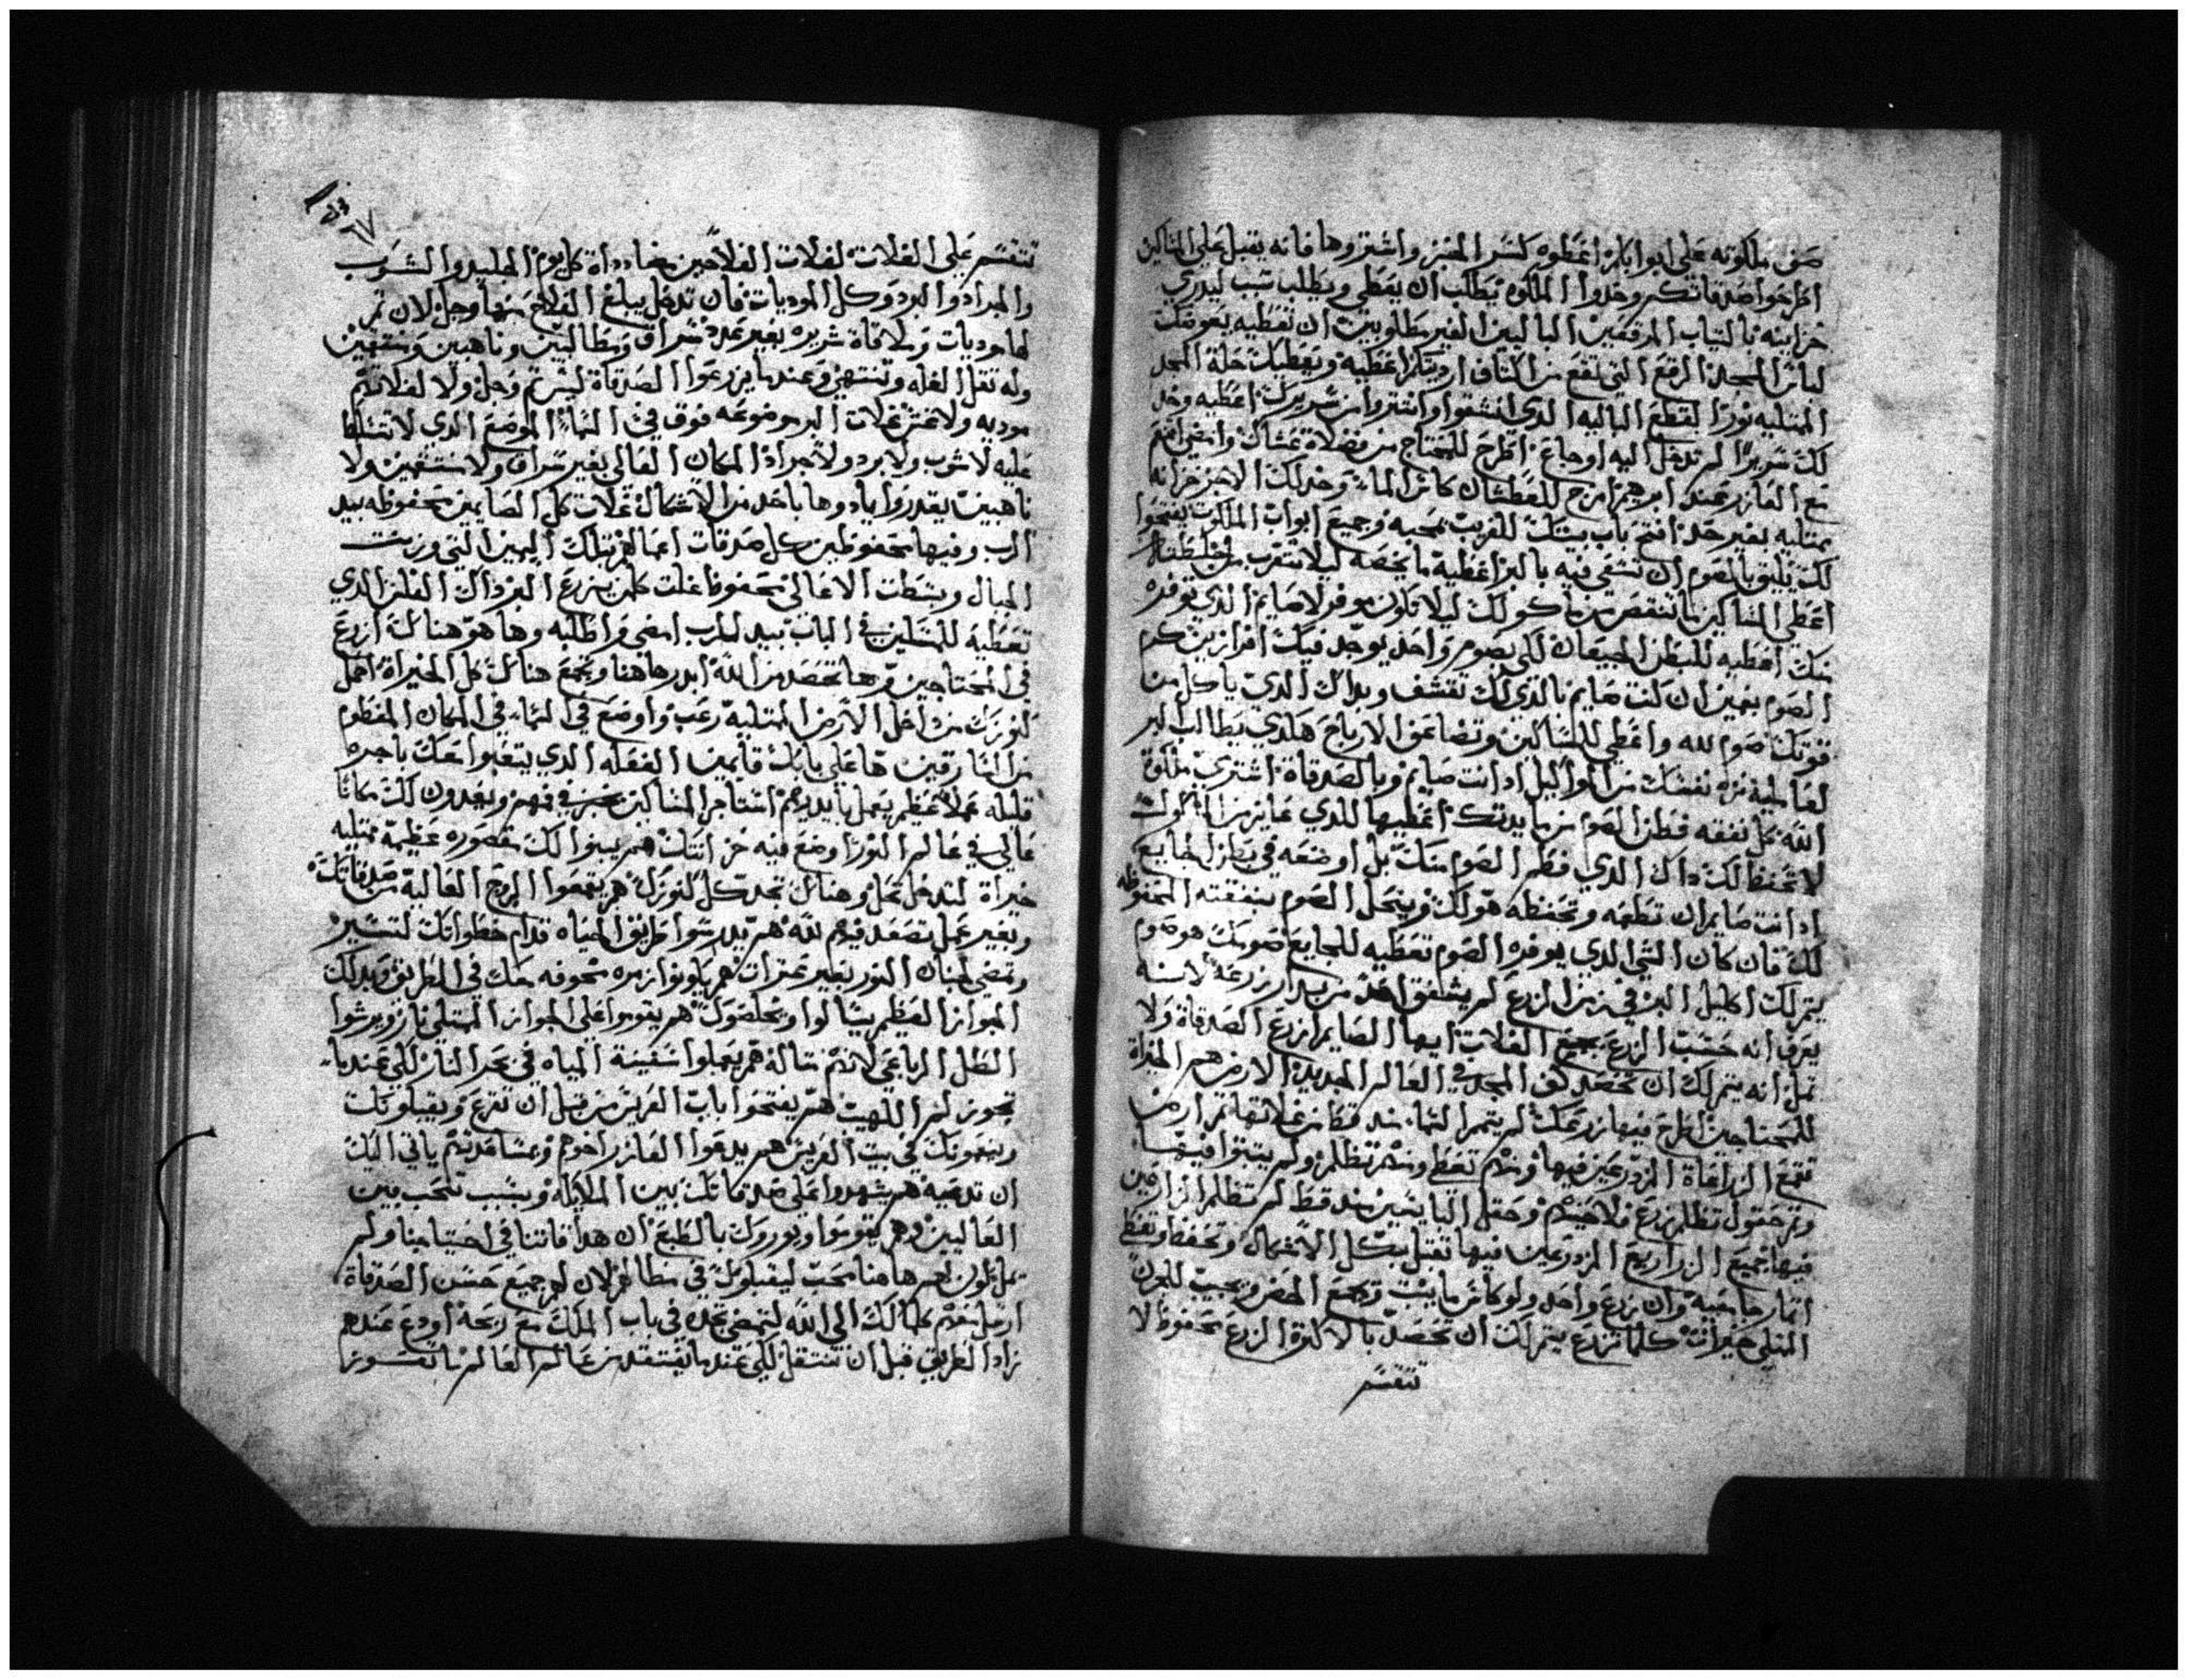 صف ملكوته على ابوابكم اعطوه كسر الخبز واشتروها فانه يقبل على المساكين
اطرحوا صدقاتكم وخدوا الملكوه يطلب ان يعطى ويطلب سبب ليدري
خزاينه بالتياب المرقعين الباليين الغير مطلوبين ان تعطيه يعوضك
لباس المجد الرقع التي تقع من اكتاف ارديتك اعطيه ويعطيك حلة المجد
الممتليه نورا لقطع الباليه الدي انشقوا وانتتروا من سريرك اعطيه وخد
لك سريرا لم تدخل اليه اوجاع اطرح للمحتاج من فضلاة عشاك وامضي اتهم
مع العازر عند ابرهيم امزج للعطشان كاس الماء وخد لك الاجر خزانه
ممتليه بغير حد افتح باب بيتك للغريب بمحبه وجميع ابواب الملكوت يفتحوا
لك يليق بالصوم ان تسعى فيه بالبر اعطيه ما يخصه ليلا تتغرب من خلطته
اعطي المساكين ما تنقص من ماكولك ليلا تكون موفر لا صايم الدي توفره
منك اعطيه للبطن الجيعان لكي بصوم واحد يوجد فيك افرازين كرم
الصوم بغين ان كنت صايم فالدي لك تقشف وبداك الدي ياكل من
قوتك صوم لله واعطي للمساكين وتضاعف الارباح هكدي يطالب البر
لفاعليه نزه نفسك من الاواكيل ادا انت صايم وبالصدقاة اشتري ملكوة
الله كل نفقه فطر الصوم من مايدتك اعطيها للدي عايز من الماكولات
لا تحفظ لك داك الدي فطر الصوم منك بل اوضعه في بطن الجايع
ادا انت صايم ان تطعمه وتحفظه هو لك ويتحل الصوم بنفقته المحفوظه
لك فان كان الشي الدي يوفره الصوم تعطيه للجايع صومك هو صوم
يتم لك اكليل البر في زمن الزرع لم يشفق احد من بدار زرعه لانه
يعرف انه حسب الزرع يجمع الغلات ايها الصايم ازرع الصدقاة ولا
تمل انه يتم لك ان تحصد كف المجد في العالم الجديد الارض هم الخداة
للمحتاجين اطرح فيها زرعك لم يتم السماء سد قط من غلاتها تم ارض
تقمع الزراعاة المزدرعين فيها وتم تعطي وتم تظلم ولم يتبتوا فيها
وتم حقول تظلم زرع فلاحيهم وحقل البايسين سد قط لم تظلم الزارعين
فيها جميع الزراريع المزدرعين فيها تقبل بكل الاتمال وتحفظ وتعطي
اتمار جامعيه وان زرع واحد ولو كاس ما يبت وتجمع الخضر وتجيب للجرن
المتلي خيرات كلما تزرع يتم لك ان تحصد بالاكترة الزرع محفوظ لا
تتقسم
تتقسم على الغلات لغلات الفلاحين مضاددات كل يوم الجليد والشوب
والجراد والبرد وكل الموديات فان تدخل يبلغ الفلاح منها وجل لان تم
لها موديات وملاقاة شريره بغير عدد سراق ومطالبين وناهبين ومنتهين
وله تقل الغله وتنتهي وعندما يزرعوا الصدقاة ليس تم وجل ولا لغلاتهم
موديه ولا عش غلات البر موضوعه فوق في السماء الموضع الدي لا تتسلط
عليه لا شوب ولا برد ولا جراد المكان العالي بغير سراق ولا منتهين ولا
ناهبين يقدروا يادوها باحد من الاشكال غلات كل الصايمين محفوظه بيد
الرب وفيها محفوظين كل صدقات اعمالهم بتلك اليمين التي وزنت
الجبال وبسطت الاعالي محفوظا غلت كلمن يزرع البر داك الفلس الدي
تعطيه للمسكين في الباب بيد الرب امضي واطلبه وها هو هناك ازرع
في المحتاجين وتم ها تحصد من الله ابدرها هنا وتجمع هناك كل الخيراة احمل
كنوزك من داخل الارض الممتليه رعب واوضع في السماء في المكان المعظوم
من السارقين ها على بابك قايمين الفعله الدي يتعبوا معك باجره
قليله عملا عظيم يعمل بايديهم استاجر المساكين بخبز في فمهم ويعدون لك مكانا
عالي في عالم النور اوضع فيه خزانتك هم يبنوا لك مقصوره عظيمة ممتليه
خيراة لتدخل تحل وهناك تجد كل كنوزك هم يقمعوا الدرج العاليه من صدقاتك
وبغير عمل تصعد فيهم لله هم يدرسوا طريق الحياه قدام خطواتك لتسير
وتمضي لجنان النور بغير عترات هم يكونوا زمره محوفه معك في الطريق وبدلك
الجواز العظيم يسالوا ويخلصوك هم يقوموا على الجواز الممتلي نار ويرشوا
الطل الرباعي لانهم متاله هم يعملوا سفينة المياه في بحر النار لكي عندما
تجوز لم اللهيب هم يفتحوا باب العريس من قبل ان تقرع ويقبلونك
وينعمونك في بيت العريس هم يدعوا العازر اخوهم وبمساعدتهم ياتي اليك
ان تدعيه هم شهدوا على صدقاتك بين الملايكه وبسبب تتحب بين
العاليين وهم يقوموا ويوروك بالطبع ان هدا قاتنا في احتياجنا ولم
يمل تكون لهم ها هنا محب ليقبلوك في مظالهم لان لهم جميع حسن الصدقاة
ارسل تقدم كلما لك الي الله لتمضي تجده في باب الملك مع ربحه اودع عندهم
زاد الطريق قبل ان تنتقل لكي عندما يفتقدك من عالم العالم ما تعوز